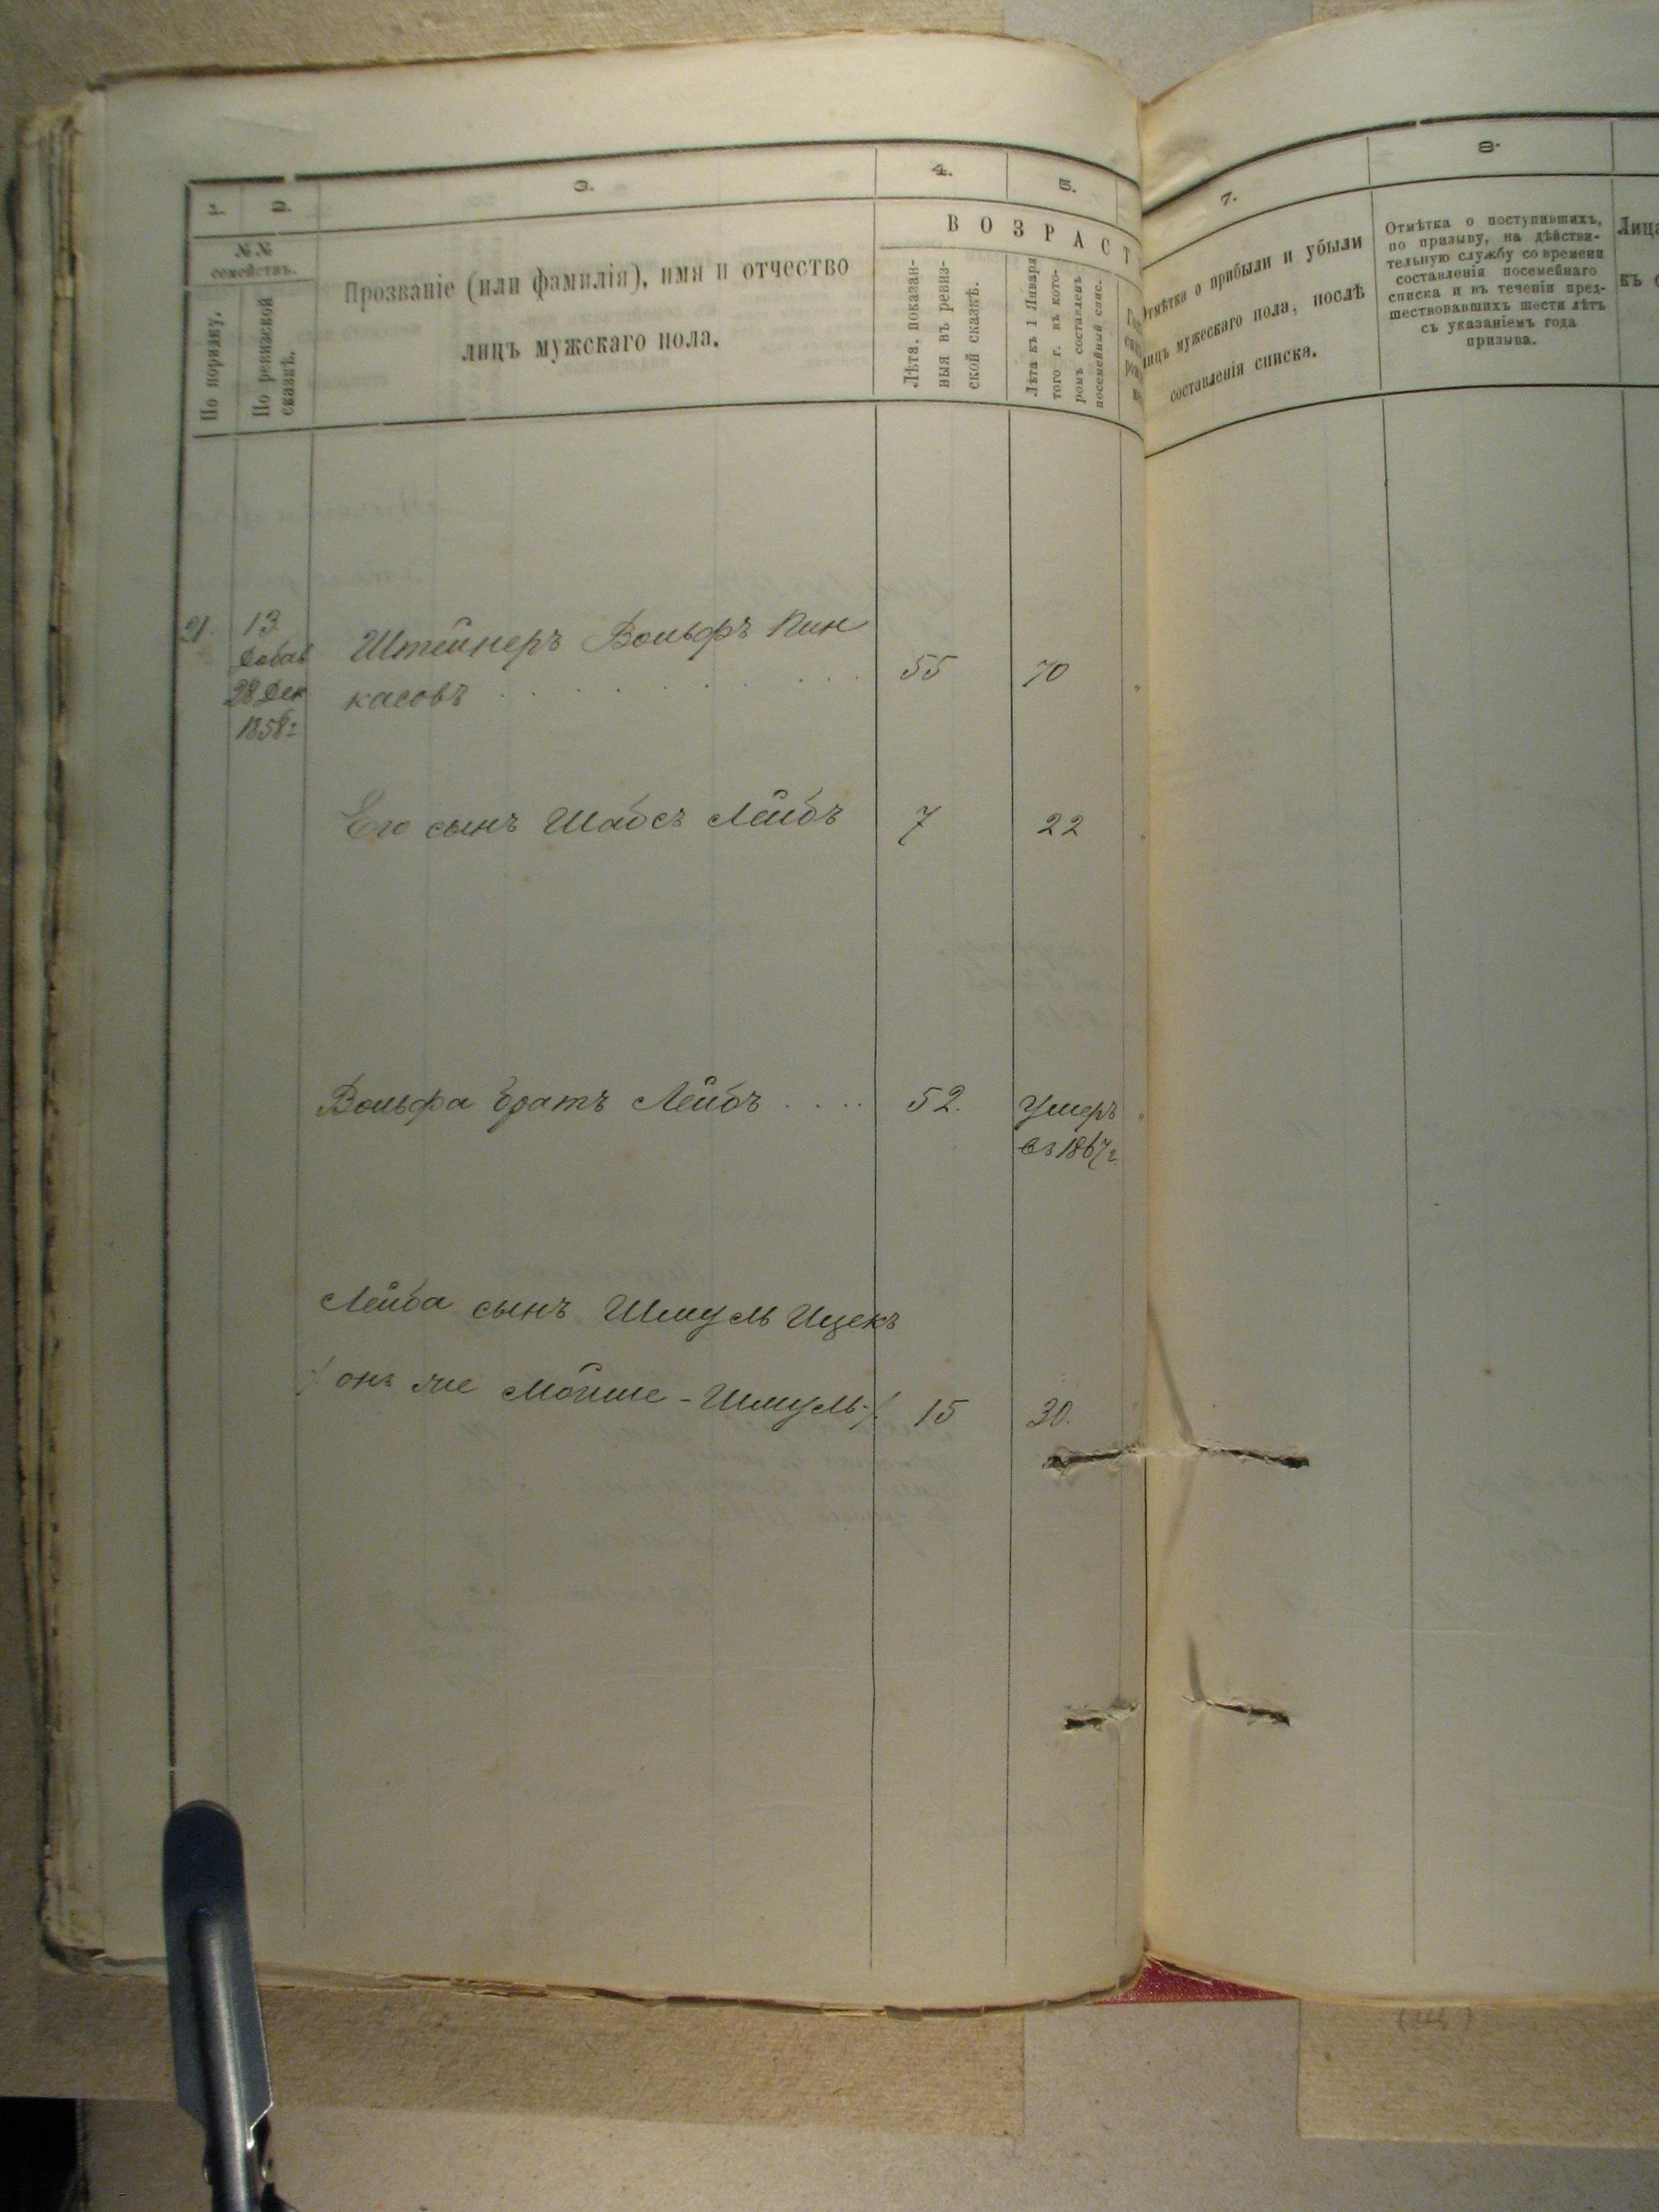 1.
2.
3.
4.
5.
№№
семействъ.
По порядку.
По ревизской
сказкѣ.
Прозваніе (или фамилія), имя и отчество
лицъ мужскаго пола.
ВОЗРАСТ
Лѣта, показан-
ныя въ ревиз-
ской сказкѣ.
Лѣта къ 1 Января
того г. въ кото-
ромъ составленъ
посемейный спис.
7.
8.
Отмѣтка о прибыли и убыли
лицъ мужескаго пола, послѣ
составленія списка.
Отмѣтка о поступившихъ,
по призыву, на дѣйстви-
тельную службу со времени
составленія посемейнаго
списка и въ теченіи пред-
шествовавшихъ шести лѣтъ
съ указаніемъ года
призыва.
Лица
къ
21.
13
добав
28 Дек
1858 г
Штейнеръ Вольфъ Пин
касовъ . . . . . . . . 55 70
Его сынъ Шабсъ Лейбъ 7 22
Вольфа братъ Лейбъ . . . . 52. Умеръ
въ 1867 г.
Лейба сынъ Шмуль Ицекъ
/онъ же Мойше-Шмуль/. 15 30.